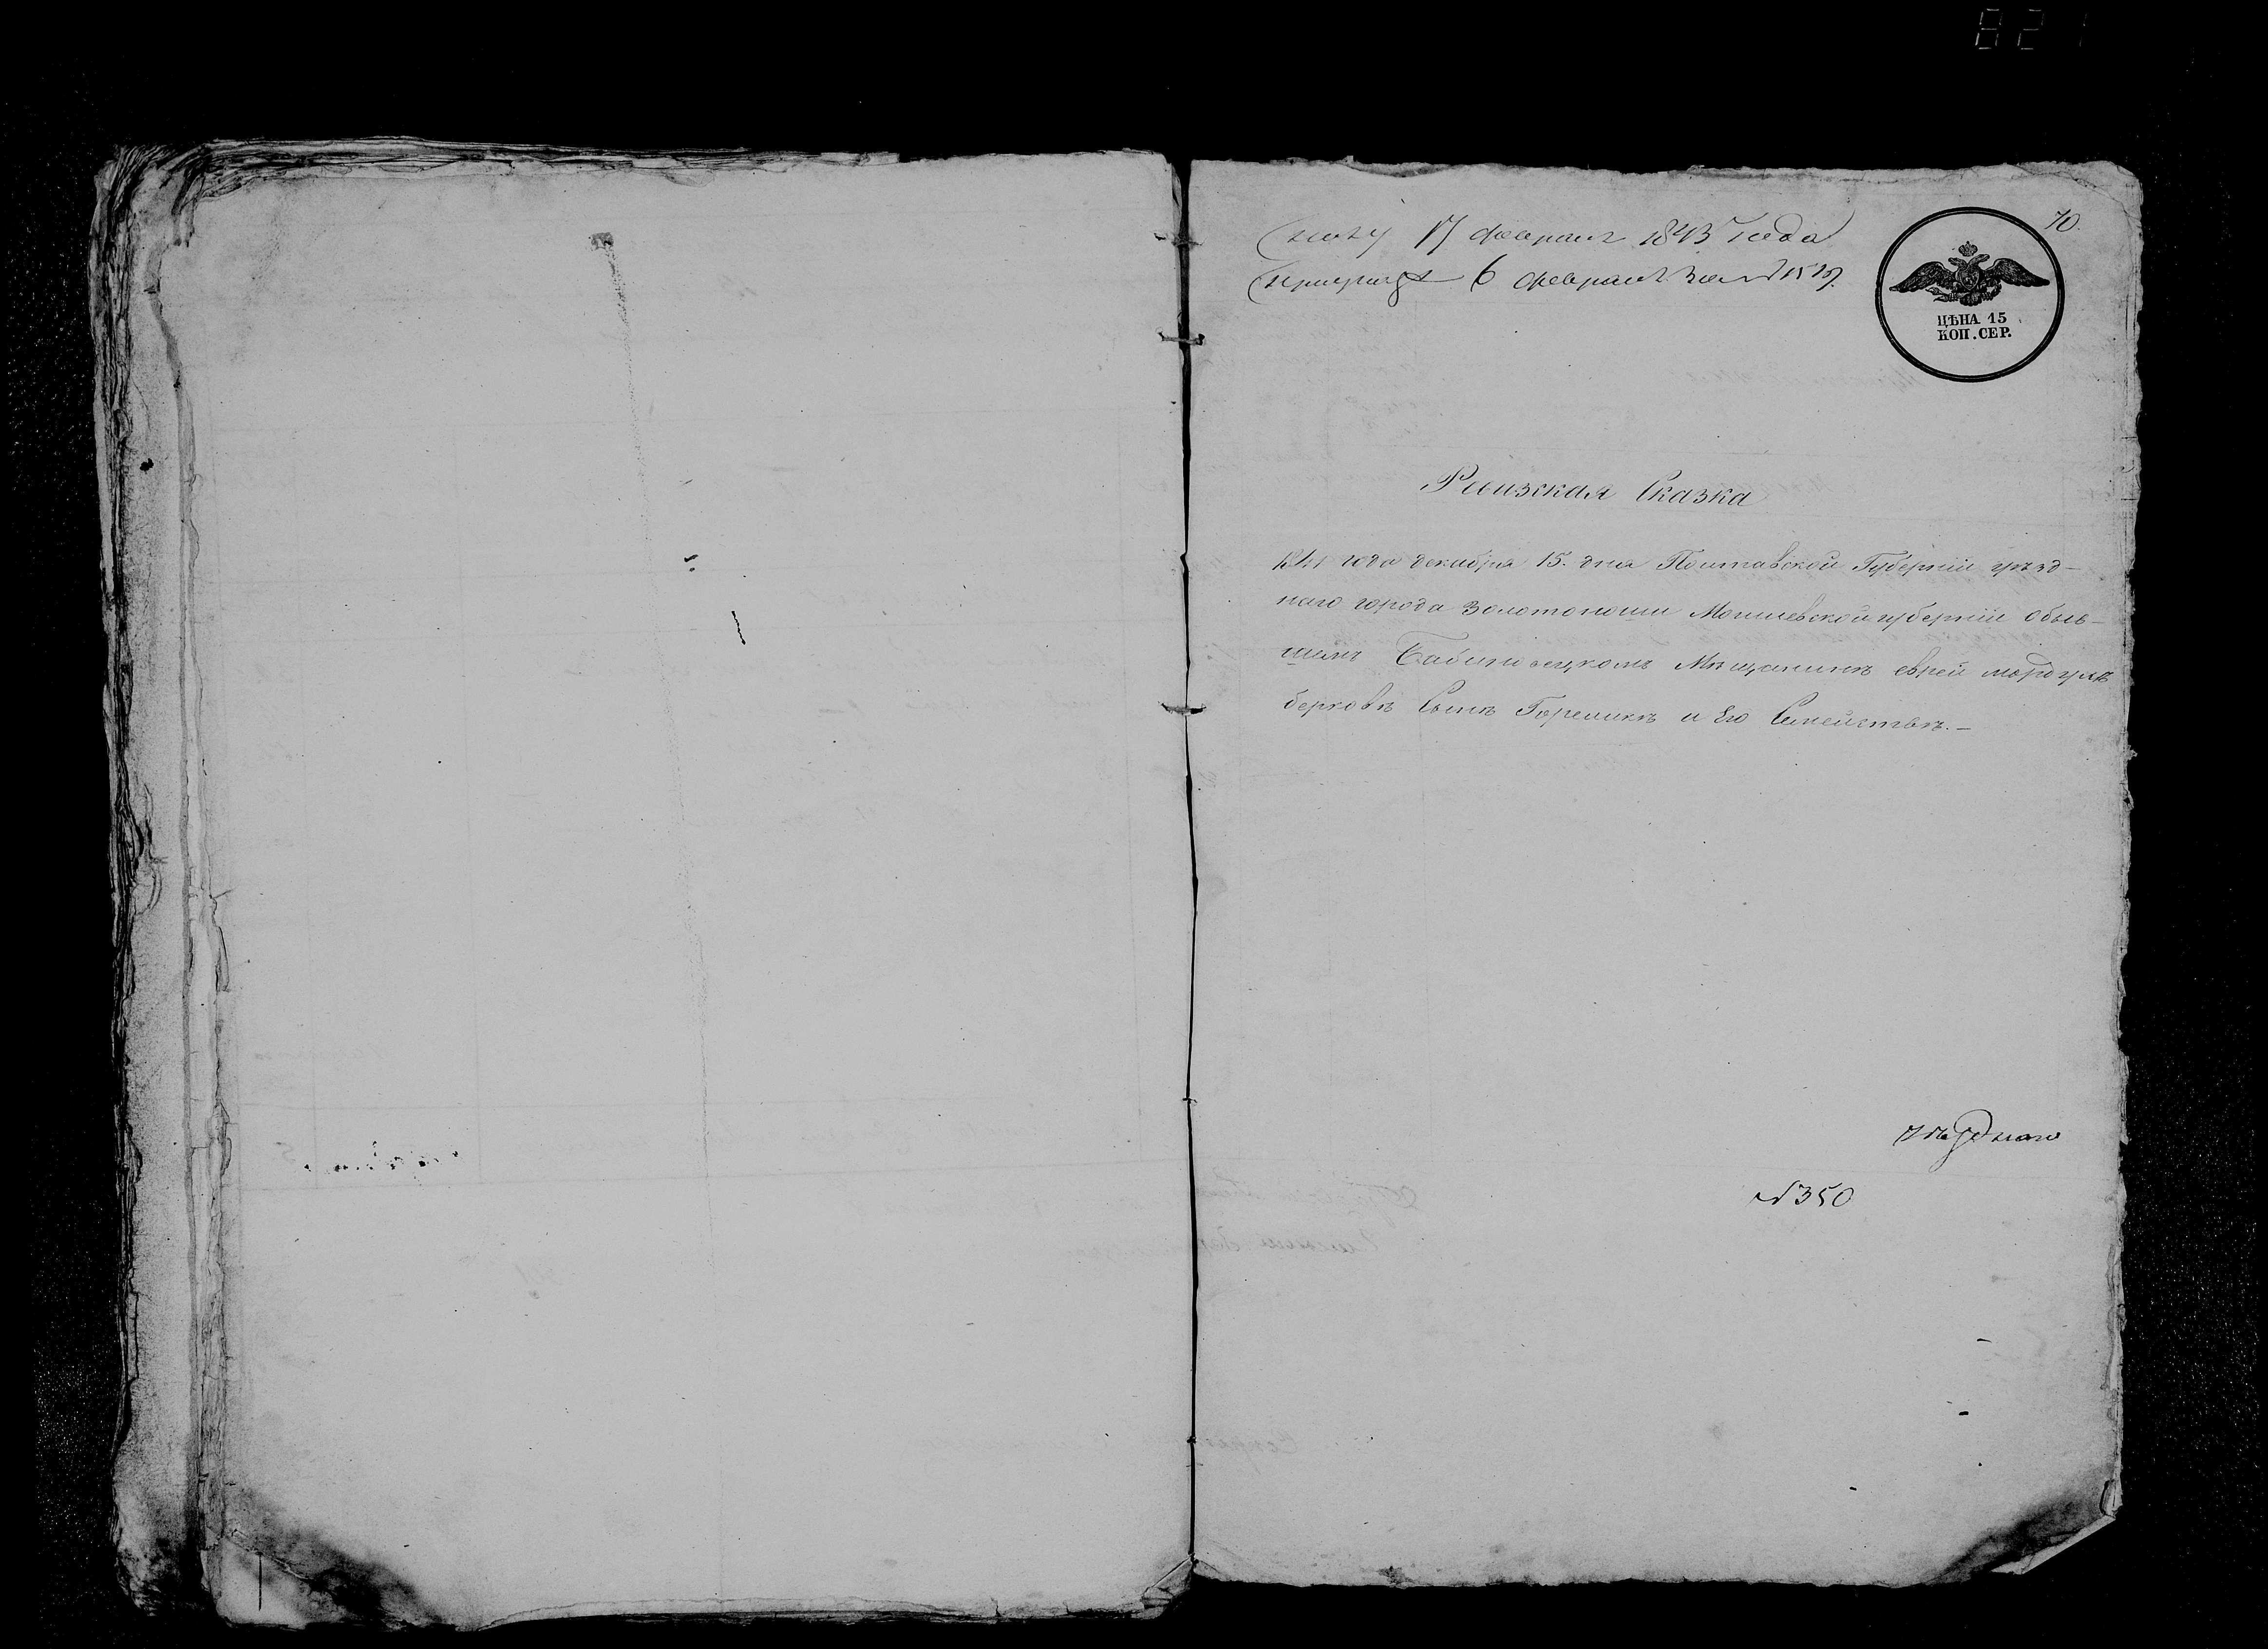 821
70.
17 февраля 1843 года
6 февраля за № 151
ЦѢНА 15
КОП. СЕР.
Ревизская Сказка
1841 года декабря 15. дня Полтавской Губерніи уѣзд-
наго города Золотоноши Могилевской губерніи обыв-
шемъ Бабиновецкомъ Мѣщанинѣ еврей
берковѣ Сынѣ Гореликѣ и Его Семействѣ.–
№ 350